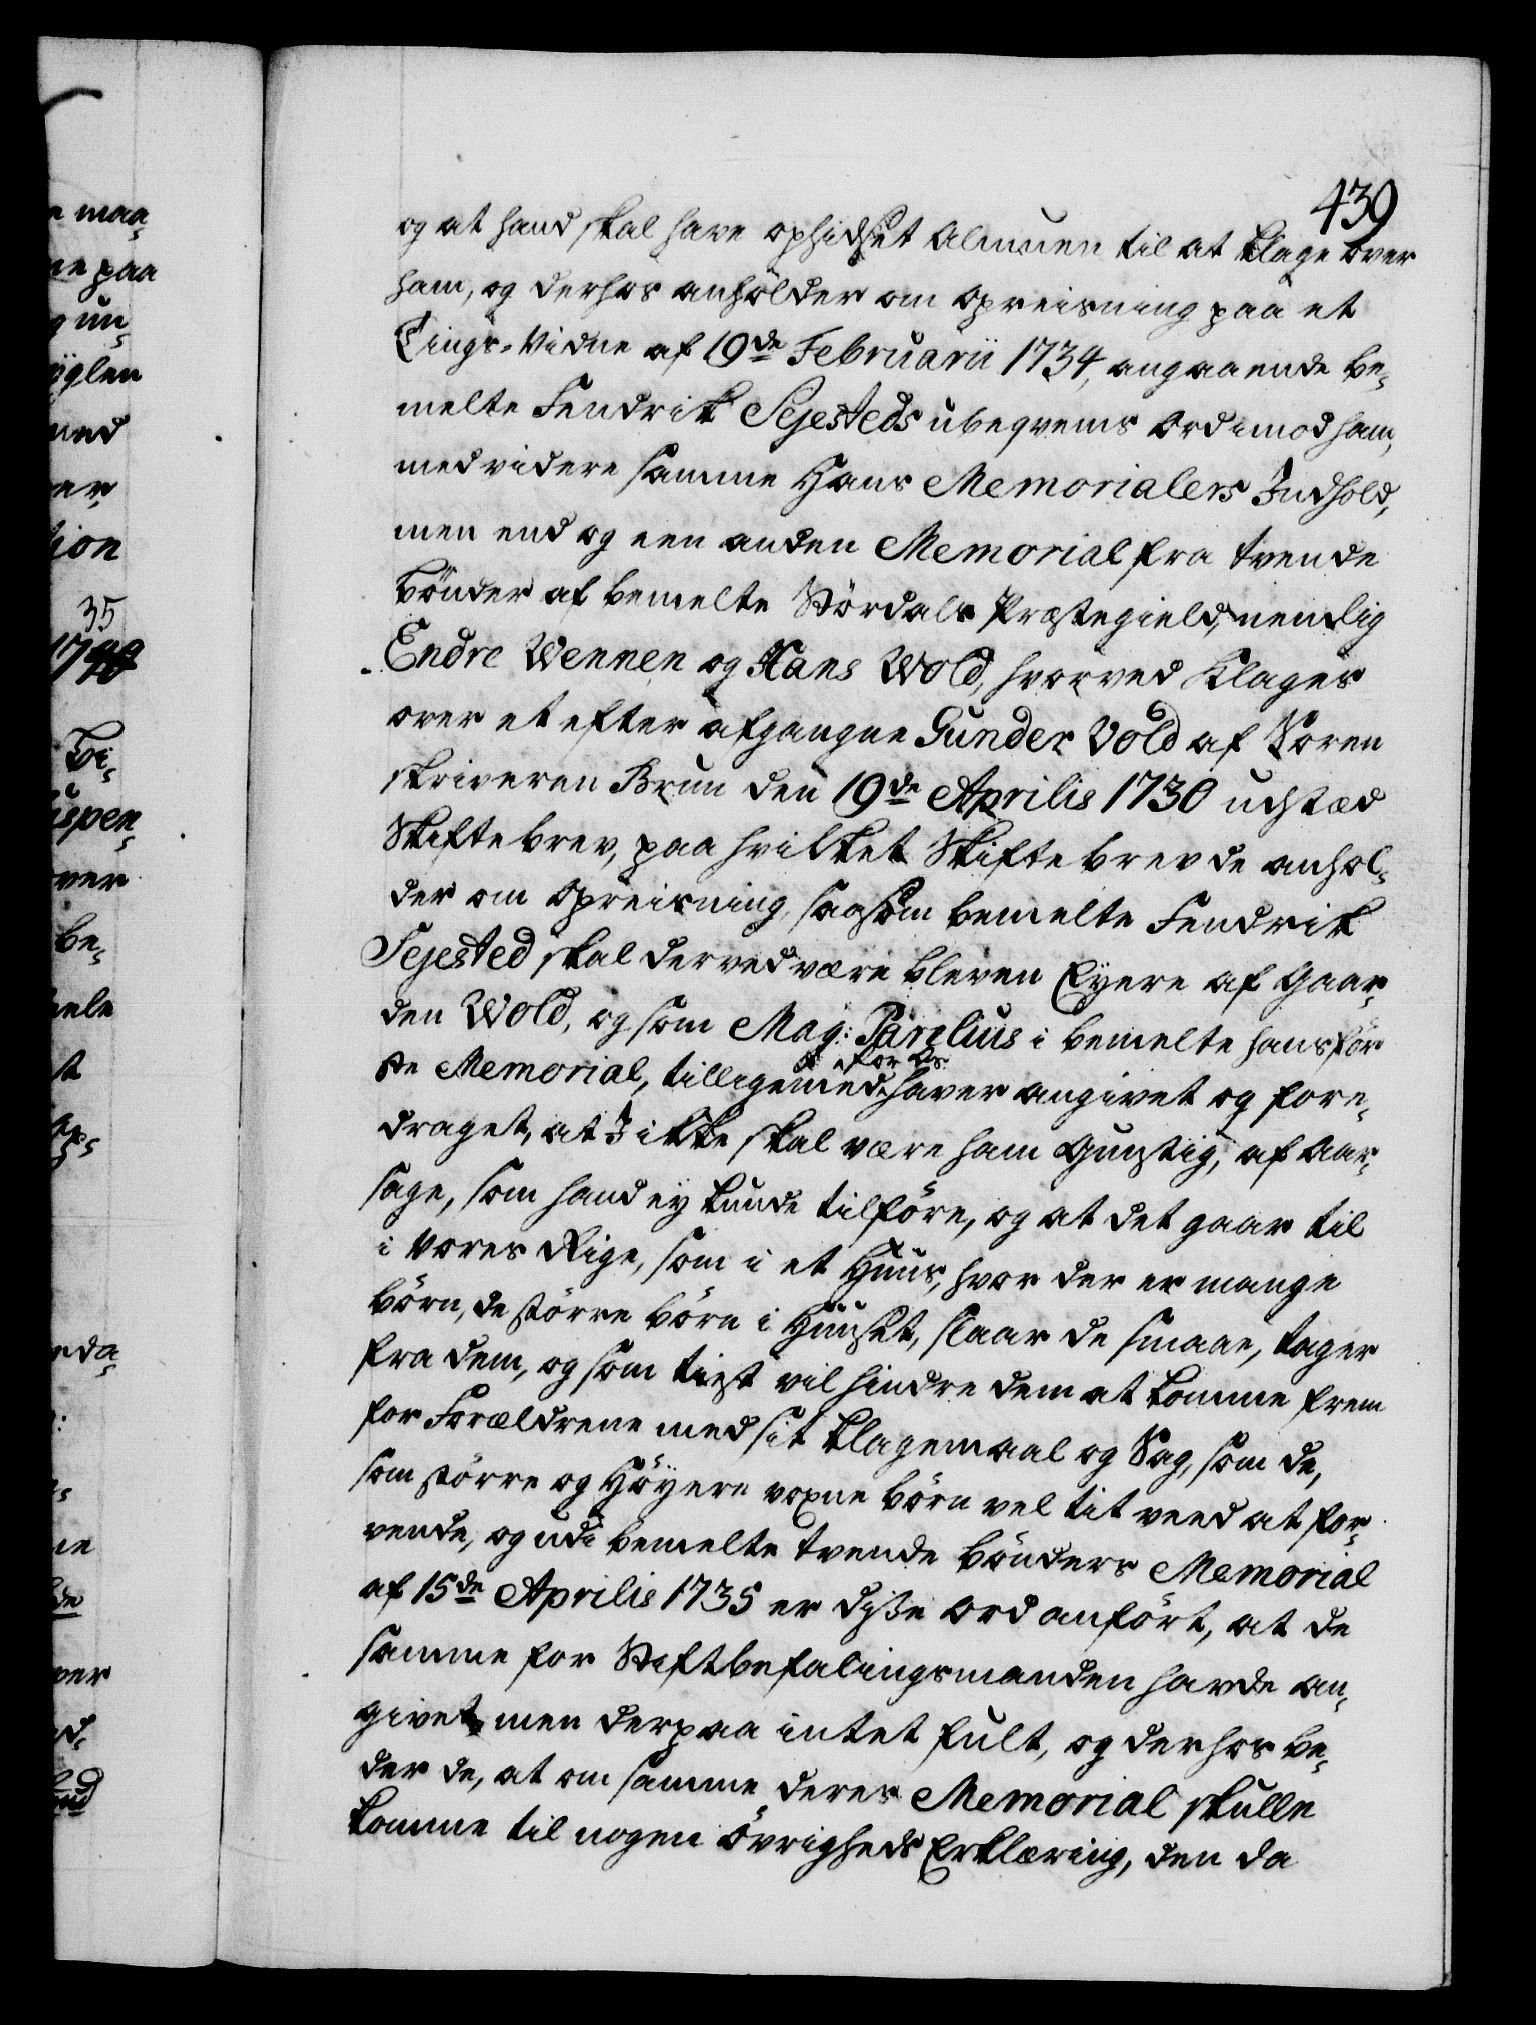 439
og at hand skal have ophidset Almuen til at klage over
ham, og derhos anholder om Opreisning paa et
Tings-Vidne af 19de Februarii 1734, angaaende be-
melte Fendrik Sejesteds ubeqvems Ord imod ham,
med videre samme Hans Memorialers Indhold,
men end og een anden Memorial fra tvende
bönder af bemelte Stördals Præstegield, nemlig
Endre Wennen og Hans Wold, hvorved klages
over et efter afgangne Gunder Vold af Soren
skriveren Brun den 19de Aprilis 1730 udstæd
Skiftebrev, paa hvilket Skiftebrev de anhol-
der om Opreisning, saasom bemelte Fendrik
Sejested skal derved være bleven Eyere af Gaar-
den Wold, og som Mag: Parelius i bemelte hans för
ste Memorial, tilligemed for Os haver angivet og fore-
draget, at I ikke skal være ham Gunstig, af Aar-
sage, som hand ey kunde tilföre, og at det gaar til
i Vores Rige, som i et Huus, hvor der er mange
börn, de större börn i Huuset, slaar de smaae, tager
fra dem, og som tiest vil hindre dem at komme frem
for Forældrene med sit klagemaal og Sag, som de,
som större og Höyere voxne börn vel tit veed at for-
vende, og udi bemelte tvende bönders Memorial
af 15de Aprilis 1735 er diße Ord anfört, at de
samme for Stiftbefalingsmanden havde an-
givet men derpaa intet fult, og derhos be-
der de, at om samme deres Memorial skulle
komme til nogen övrigheds Erklæring, den da